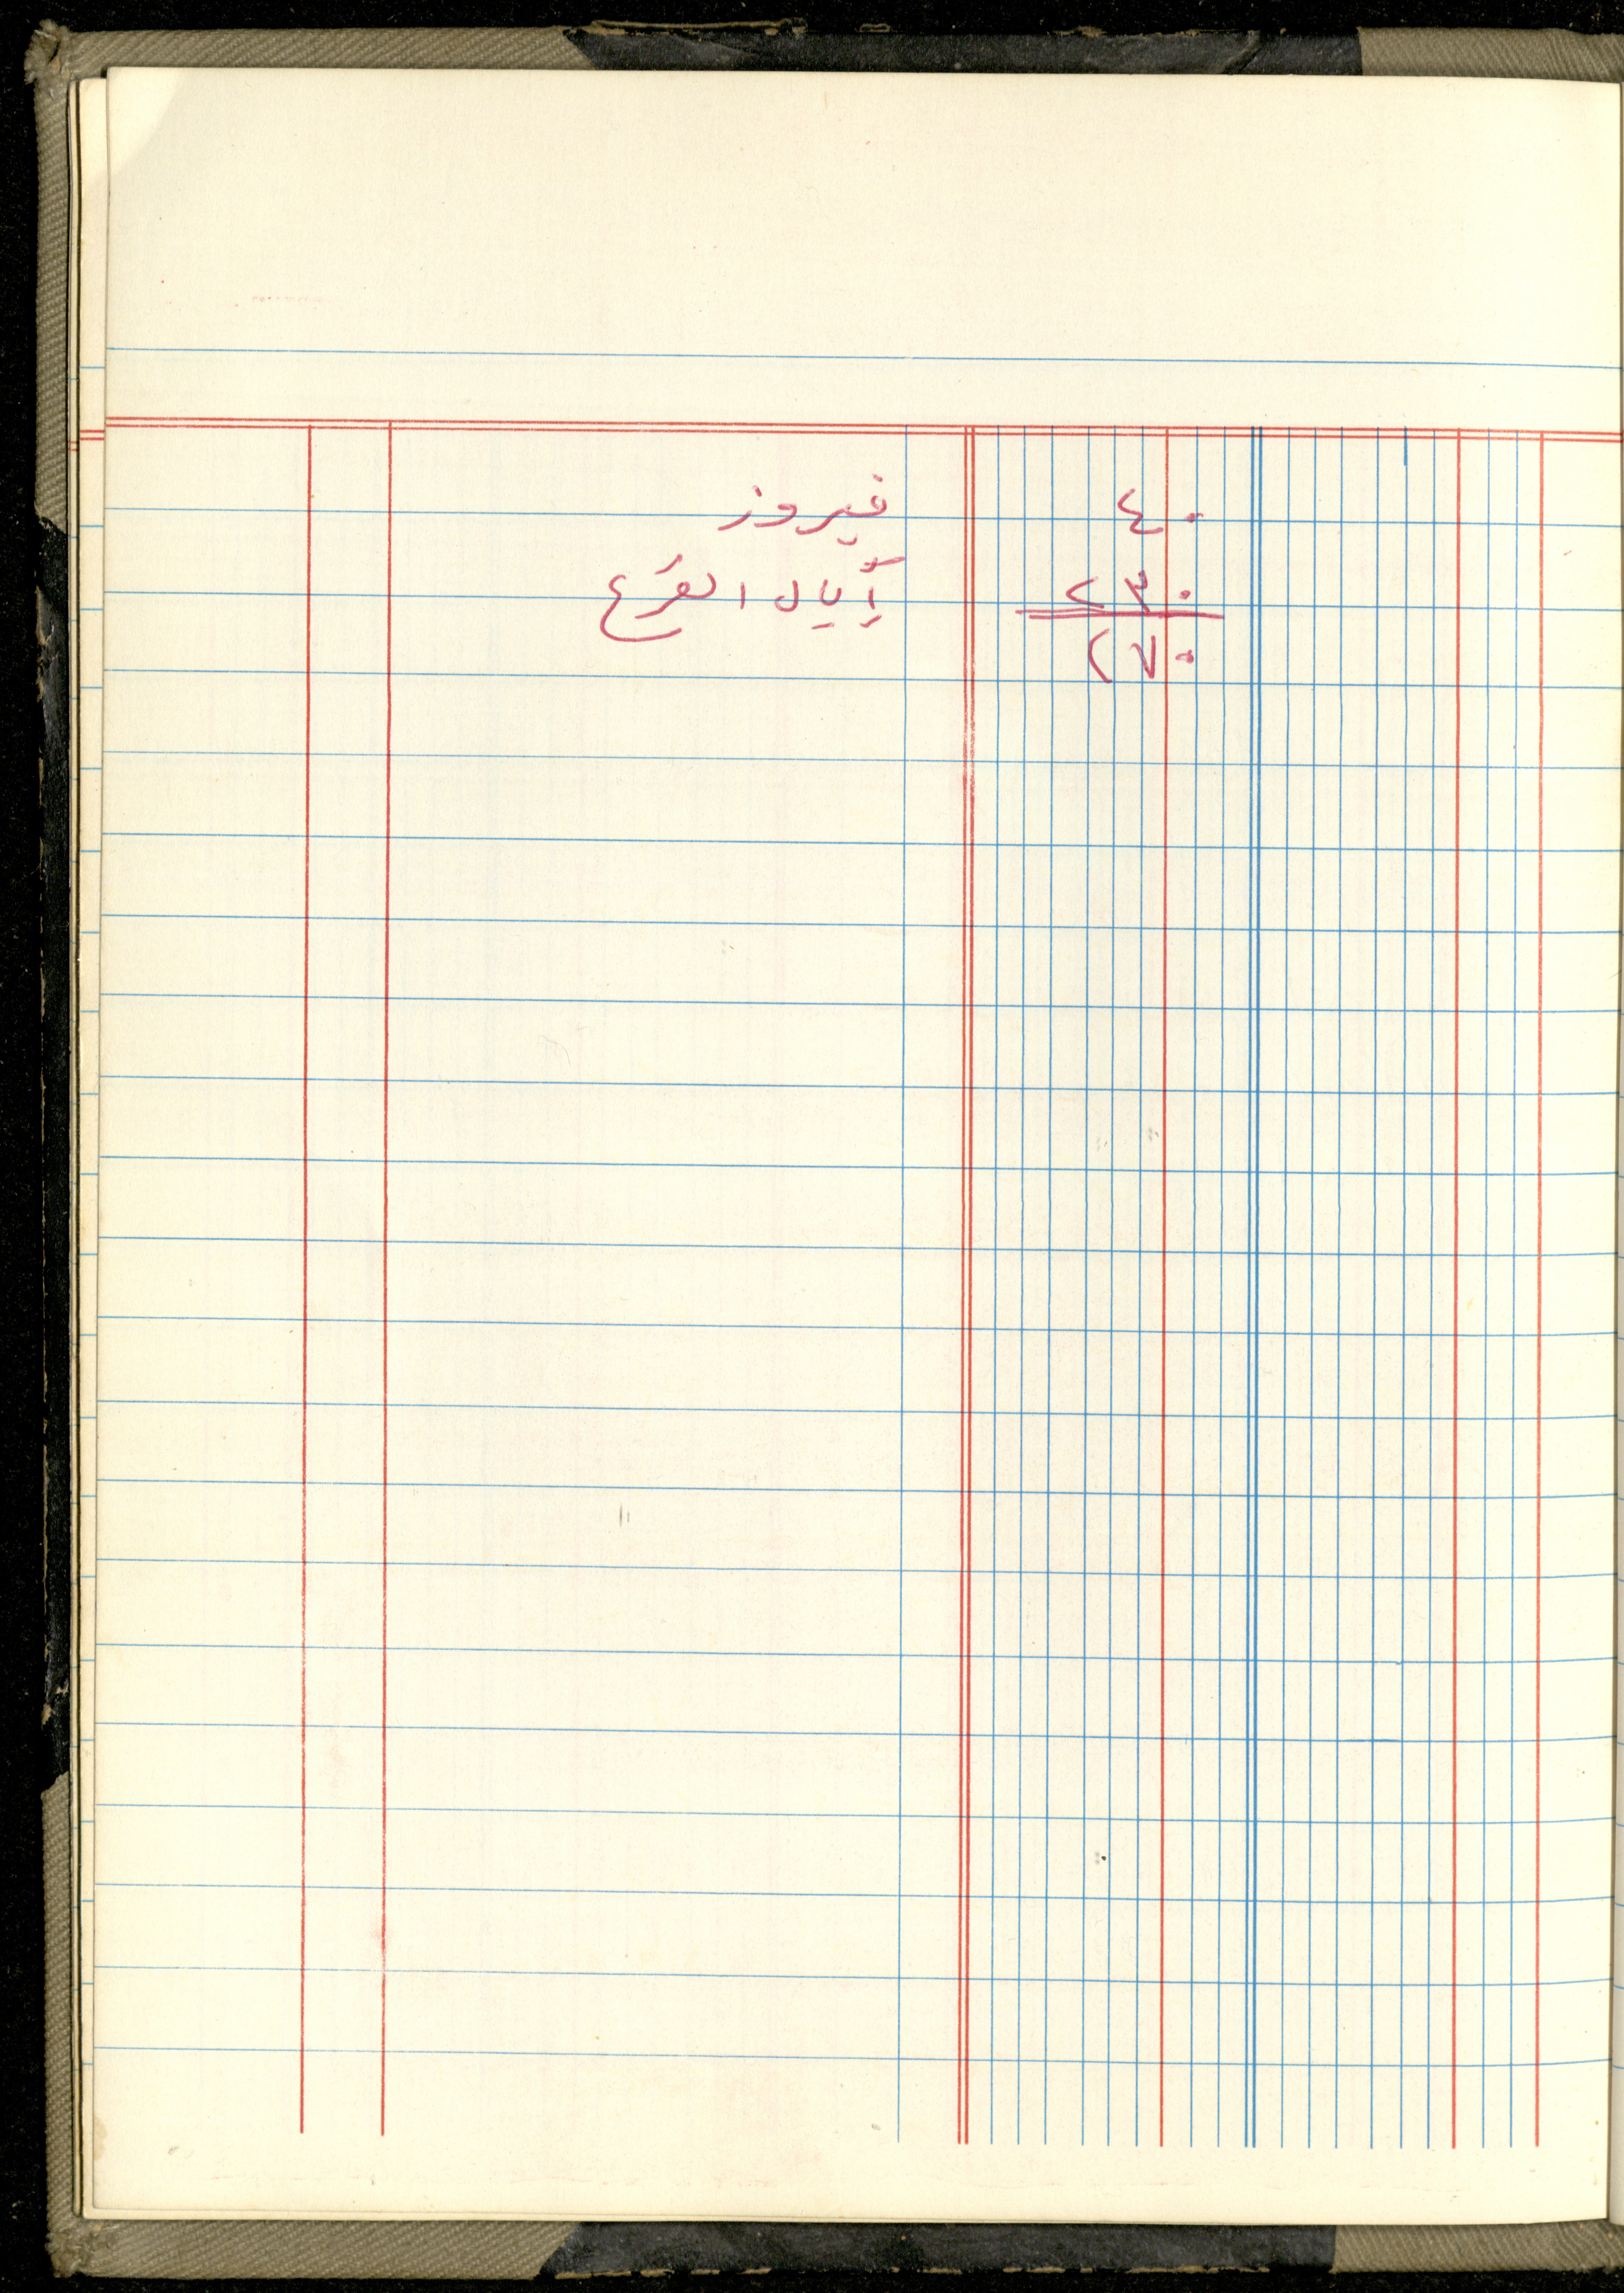 ٤٠ فيروز
٢٣٠ أيال القرع
٢٧٠